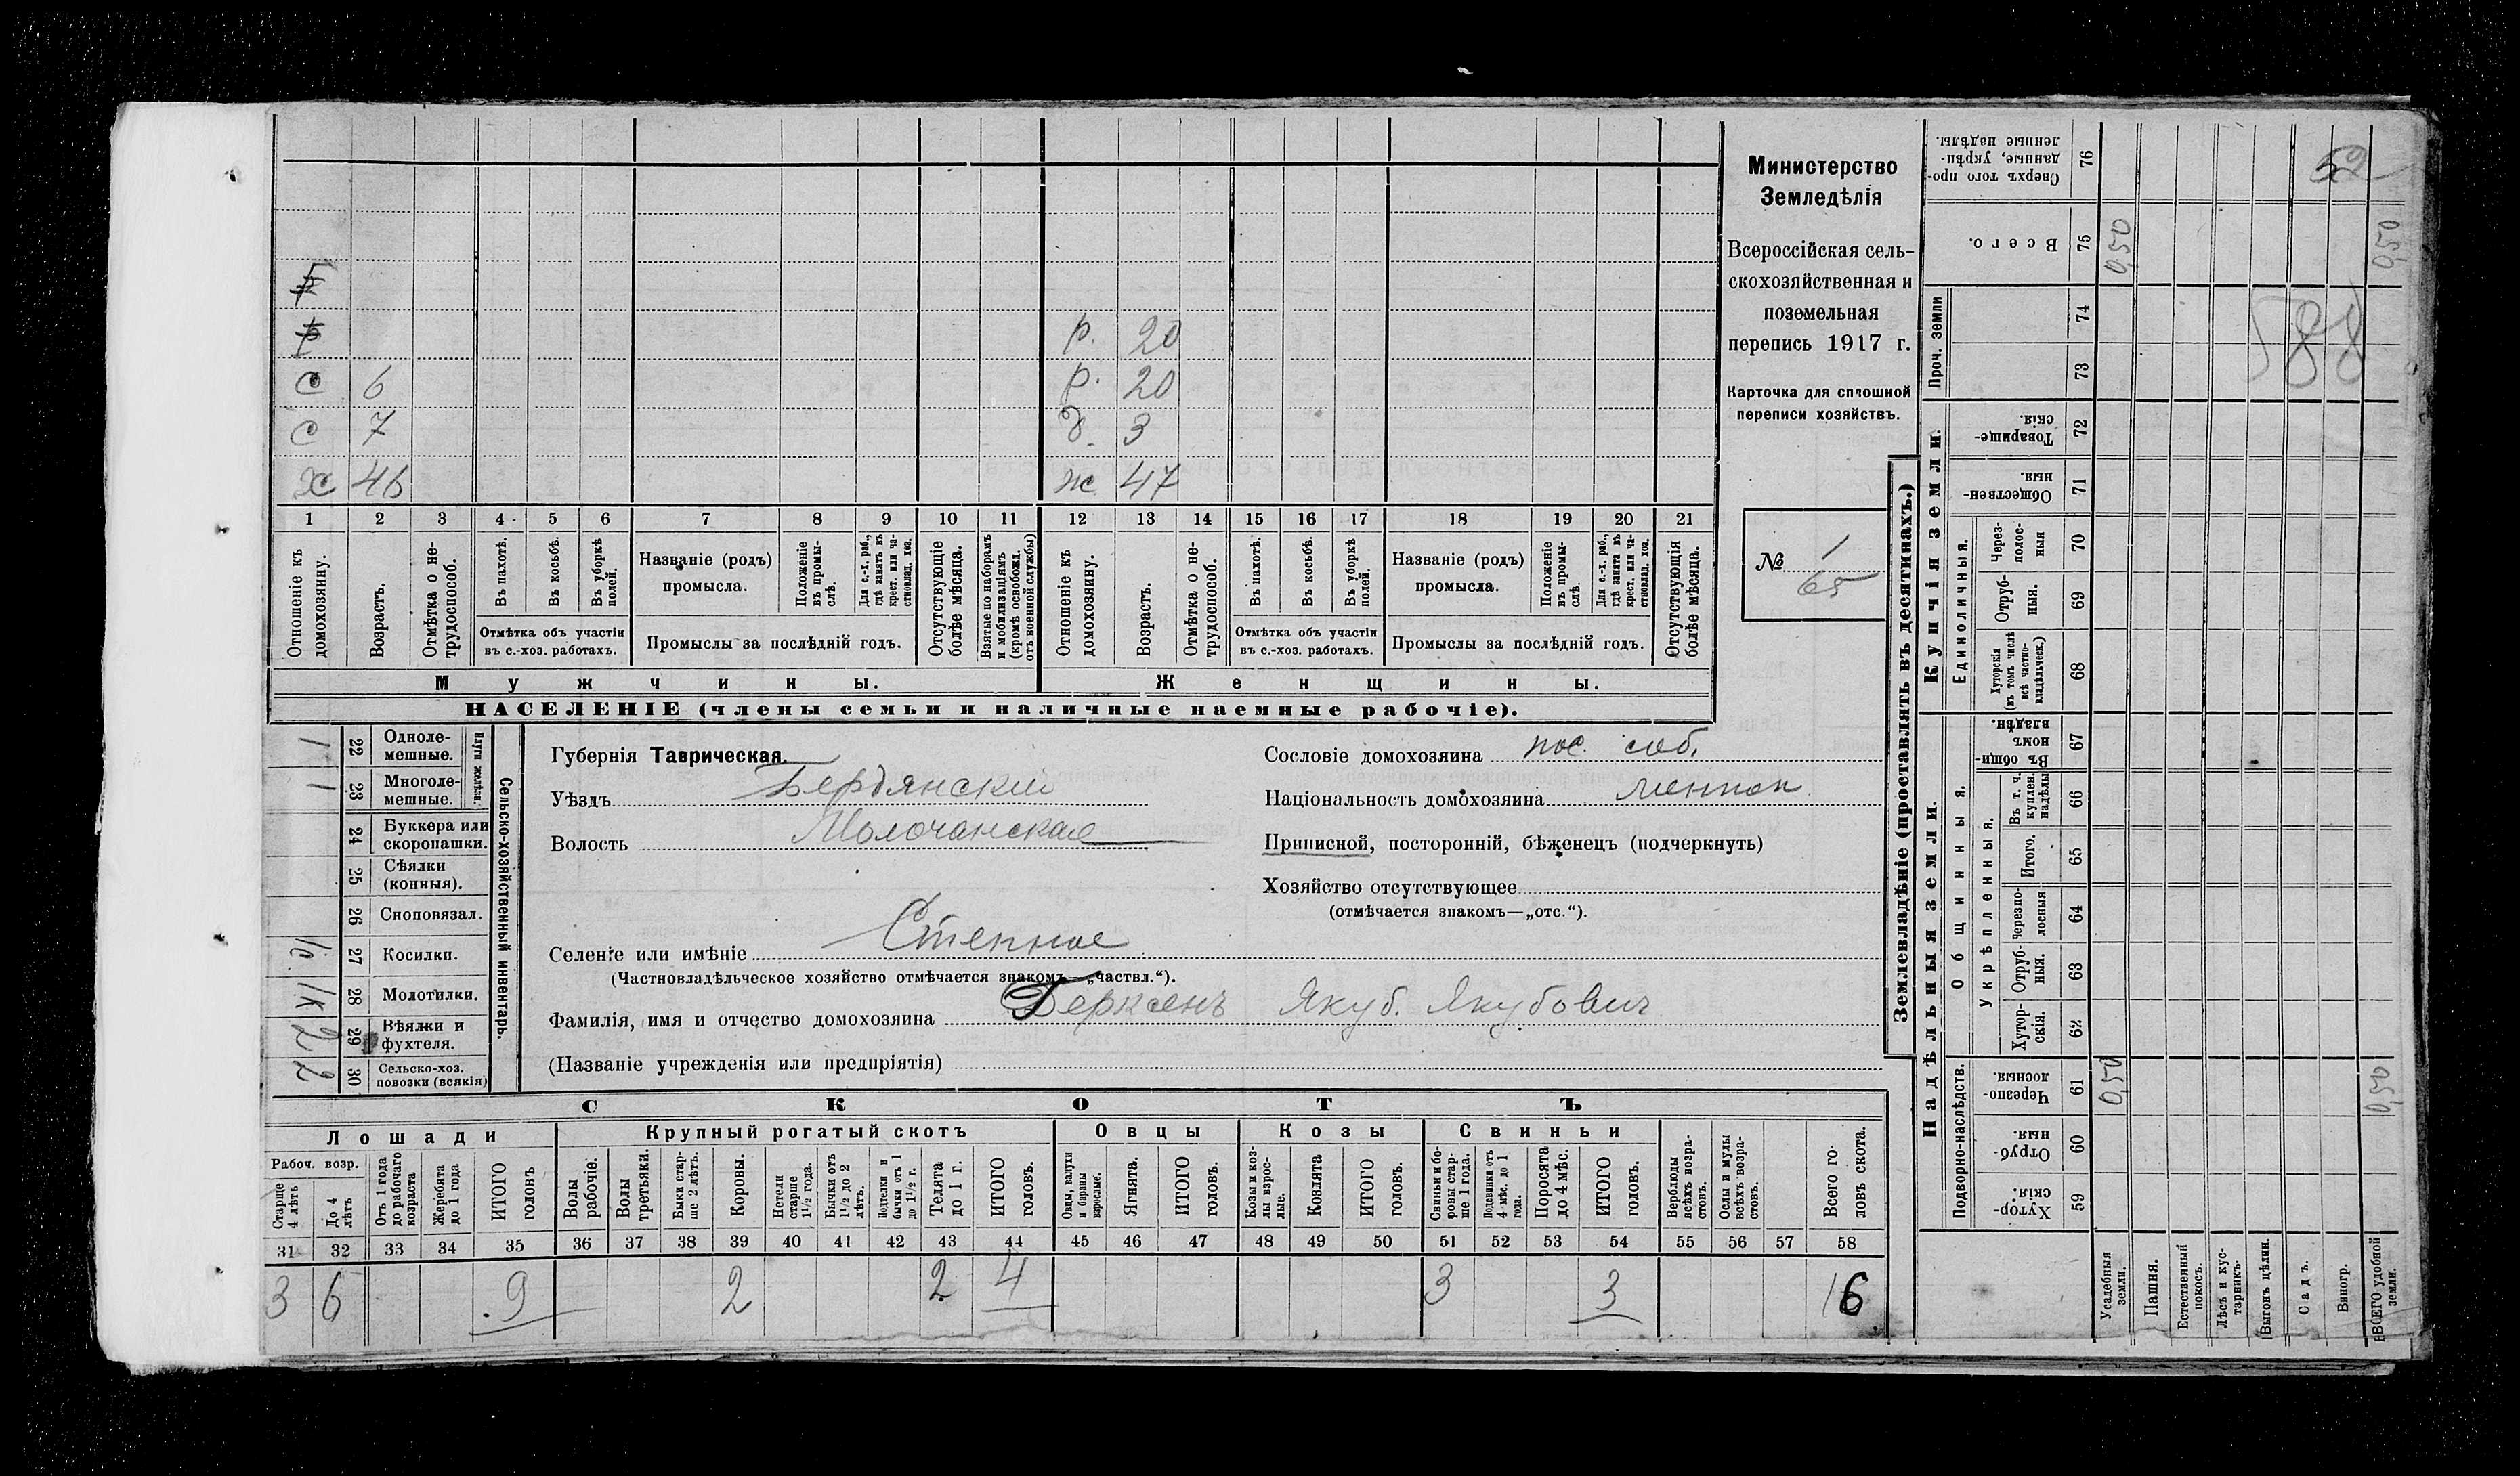 Министерство
Земледѣлія
Всероссійская сель-
скохозяйственная и
поземельная
перепись 1917 г.
Карточка для сплошной
переписи хозяйствъ.
№ 1
65
р. 20
р. 20
С 6 д. 3
С 7
Х 46 ж 47
1 2 3 4 5 6 7 8 9 10 11 12 13 14 15 16 17 18 19 20 21
Отношеніе къ домохозяину.
Возрастъ.
Отмѣтка о не-трудоспособ.
Въ пахотѣ.
Въ косьбѣ.
Въ уборкѣ полей.
Отмѣтка объ участіи
въ с.-хоз. работахъ.
Названіе (родъ)
промысла.
Положеніе въ промы-слѣ.
Для с.-х. раб., гдѣ занятъ въ крест. или ча-стновлад. хоз.
Промыслы за послѣдній годъ.
Отсутствующіе болѣе мѣсяца.
Взятые по наборамъ и мобилизаціямъ (кромѣ освобожд. отъ военной службы)
Отношеніе къ домохозяину.
Возрастъ.
Отмѣтка о не-трудоспособ.
Въ пахотѣ.
Въ косьбѣ.
Въ уборкѣ полей.
Отмѣтка объ участіи
въ с.-хоз. работахъ.
Названіе (родъ)
промысла.
Положеніе въ промы-слѣ.
Для с.-х. раб., гдѣ занята въ крест. или ча-стновлад. хоз.
Промыслы за послѣдній годъ.
Отсутствующія болѣе мѣсяца.
Мужчины.
Женщины.
НАСЕЛЕНІЕ (члены семьи и наличные наемные рабочіе).
Сельско-хозяйственный инвентарь.
Плуги желѣзн.
1 22 Одноле-мешные.
1 23 Многоле-мешные.
24 Буккера или скоропашки.
25 Сѣялки (конныя).
26 Сноповязал.
1с. 27 Косилки.
1к 28 Молотилки.
2 29 Вѣялки и фухтеля.
2 30 Сельско-хоз. повозки (всякія)
Губернія Таврическая.
Уѣздъ Бердянскій
Волость Молочанская
Селеніе или имѣніе Степное
(Частновладѣльческое хозяйство отмѣчается знакомъ—„частвл.“).
Фамилія, имя и отчество домохозяина Дерксенъ Якуб. Якубович
(Названіе учрежденія или предпріятія)
Сословіе домохозяина пос. соб.
Національность домохозяина меннон.
Приписной, посторонній, бѣженецъ (подчеркнуть)
Хозяйство отсутствующее
(отмѣчается знакомъ—„отс.“).
СКОТЪ
Лошади
Крупный рогатый скотъ
Овцы
Козы
Свиньи
Рабоч. возр.
Старше 4 лѣтъ
До 4 лѣтъ
Отъ 1 года до рабочаго возраста
Жеребята до 1 года
ИТОГО головъ
Волы рабочіе.
Волы третьяки.
Быки стар-ше 2 лѣтъ.
Коровы.
Нетели старше 1½ года.
Бычки отъ 1½ до 2 лѣтъ.
Подтелки и бычки отъ 1 до 1½ г.
Телята до 1 г.
ИТОГО головъ.
Овцы, валухи и бараны взрослые.
Ягнята.
ИТОГО головъ.
Козы и коз-лы взрос-лые.
Козлята
ИТОГО головъ.
Свиньи и бо-ровы стар-ше 1 года.
Подсвинки отъ 4 мѣс. до 1 года.
Поросята до 4 мѣс.
ИТОГО головъ.
Верблюды всѣхъ возра-стовъ.
Ослы и мулы всѣхъ возра-стовъ.
Всего го-ловъ скота.
31 32 33 34 35 36 37 38 39 40 41 42 43 44 45 46 47 48 49 50 51 52 53 54 55 56 57 58
3 6 9 2 2 4 3 3 16
Землевладѣніе (проставлять въ десятинахъ.)
Надѣльныя земли.
Купчія земли.
Проч. земли
Подворно-наслѣдств.
Общинныя.
Укрѣпленныя.
Единоличныя.
Сверхъ того про-данные, укрѣп-ленные надѣлы. 76
Всего. 75 0,50 0,50
74
73
Товарище-скія 72
Обществен-ныя. 71
Через-полос-ныя 70
Отруб-ныя. 69
Хуторскія (въ томъ числѣ всѣ частно-владѣльческ.) 68
Въ общин-номъ владѣн. 67
Въ т. ч. куплен. надѣлы 66
Итого. 65
Черезпо-лосныя 64
Отруб-ныя. 63
Хутор-скія. 62
Черезпо-лосныя. 61 0,50 0,50
Отруб-ныя. 60
Хутор-скія. 59
Усадебныя земли.
Пашня.
Естественный покосъ.
Лѣсъ и кус-тарникъ.
Выгонъ цѣлин.
Садъ.
Виногр.
ВСЕГО удобной земли.
52
588